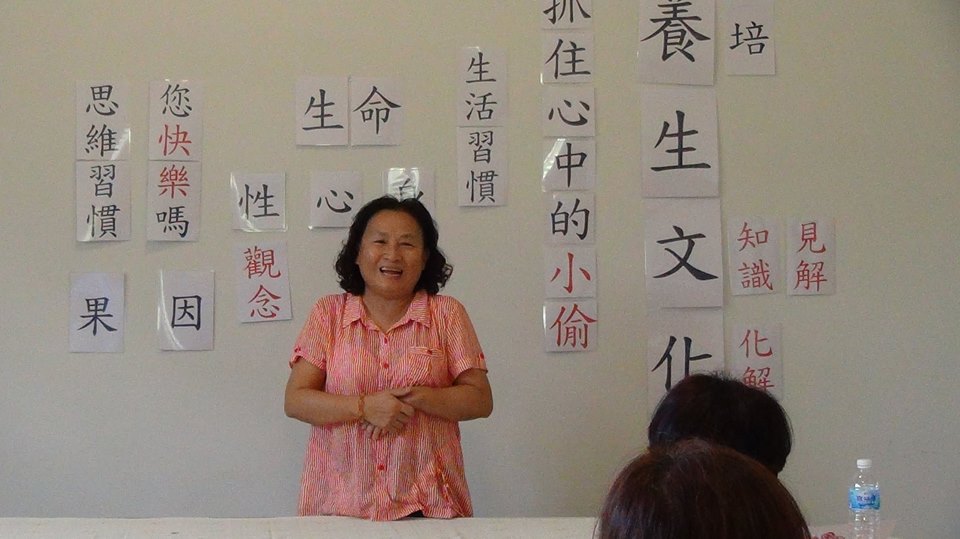 培
養生文化
見解
知識
化解
抓住心中的小偷
生活習慣
生命
性心
觀念
您快樂嗎
思維習慣
果因